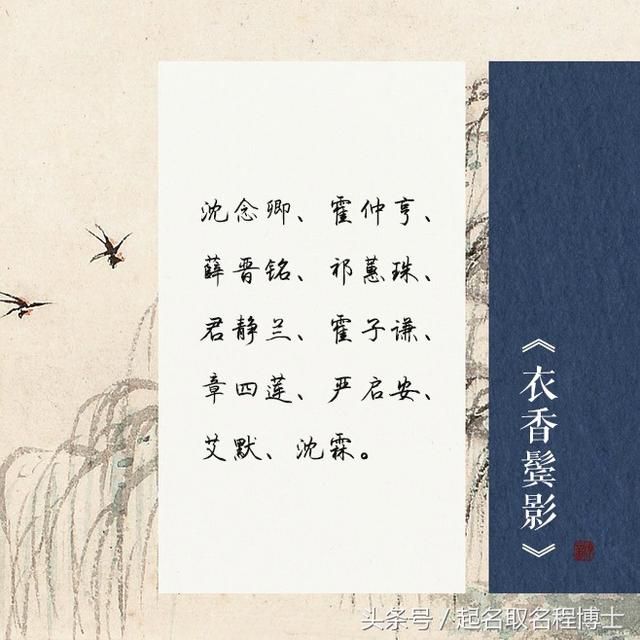 沈念卿、霍仲亨、
薛晋铭、祁蕙珠、
君静兰、霍子谦、
章四莲、严启安、
艾默、沈霖。
《衣香鬓影》
头条号／起名取名程博士